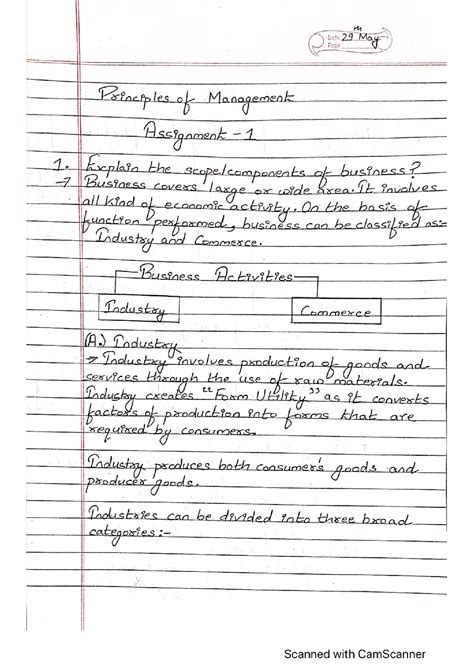 th
Date 29 May
Page
Principles of Management
Assignment - 1
1. Explain the scope/components of business?
→ Business covers large or wide area. It involves
all kind of economic activity. On the basis of
function performed, business can be classified as:-
Industry and Commerce.
Business Activities
Industry Commerce
(A.) Industry
→ Industry involves production of goods and
services through the use of raw materials.
Industry creates "Form Utility" as it converts
factors of production into forms that are
required by consumers.
Industry produces both consumer's goods and
producer goods.
Industries can be divided into three broad
categories:-
Scanned with CamScanner